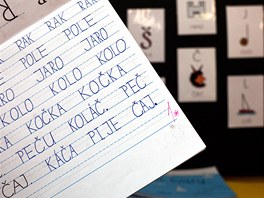 RAK RAK RAK
POLE POLE
JARO JARO
KOLO KOLO
KOČKA KOČKA
PEČU KOLÁČ. PEČ
ČAJ. KÁČA PIJE ČAJ.
1
Š
Č